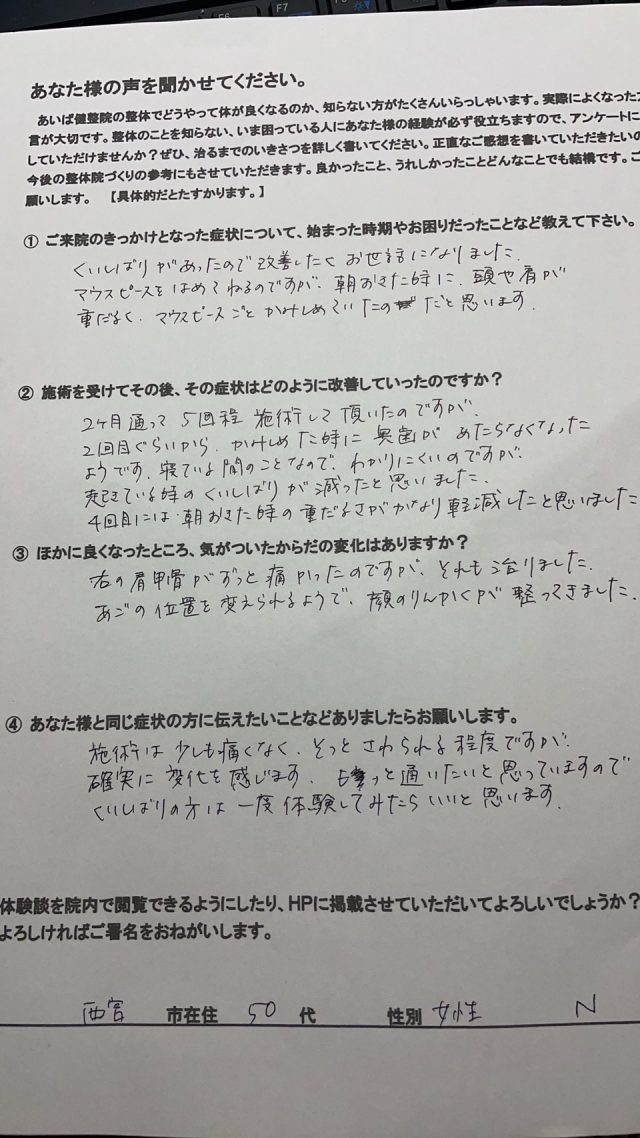 F6 F7
あなた様の声を聞かせてください。
あいば健整院の整体でどうやって体が良くなるのか、知らない方がたくさんいらっしゃいます。実際によくなった
言が大切です。整体のことを知らない、いま困っている人にあなた様の経験が必ず役立ちますので、アンケートに
していただけませんか？ぜひ、治るまでのいきさつを詳しく書いてください。正直なご感想を書いていただきたいの
今後の整体院づくりの参考にもさせていただきます。良かったこと、うれしかったことどんなことでも結構です。ご
願いします。 【具体的だとたすかります。】
① ご来院のきっかけとなった症状について、始まった時期やお困りだったことなど教えて下さい。
くいしばりがあったので改善したくお世話になりました.
マウスピースをはめてねるのですが、朝おきた時に、頭や肩が
重だるく、マウスピースごとかみしめていたのだと思います.
② 施術を受けてその後、その症状はどのように改善していったのですか？
2ヶ月通って 5回程 施術して頂いたのですが、
2回目ぐらいから、かみしめた時に奥歯があたらなくなった
ようです. 寝ている間のことなので、わかりにくいのですが、
起きている時のくいしばりが減ったと思いました.
4回目には、朝おきた時の重だるさがかなり軽減したと思いました
③ ほかに良くなったところ、気がついたからだの変化はありますか？
右の肩甲骨がずっと痛かったのですが、それも治りました.
あごの位置を変えられるようで、顔のりんかくが整ってきました.
④ あなた様と同じ症状の方に伝えたいことなどありましたらお願いします。
施術は少しも痛くなく、そっとさわられる程度ですが、
確実に変化を感じます. もっと通いたいと思っていますので
くいしばりの方は一度体験してみたらいいと思います.
体験談を院内で閲覧できるようにしたり、HPに掲載させていただいてよろしいでしょうか？
よろしければご署名をおねがいします。
西宮 市在住 50 代 性別 女性 N